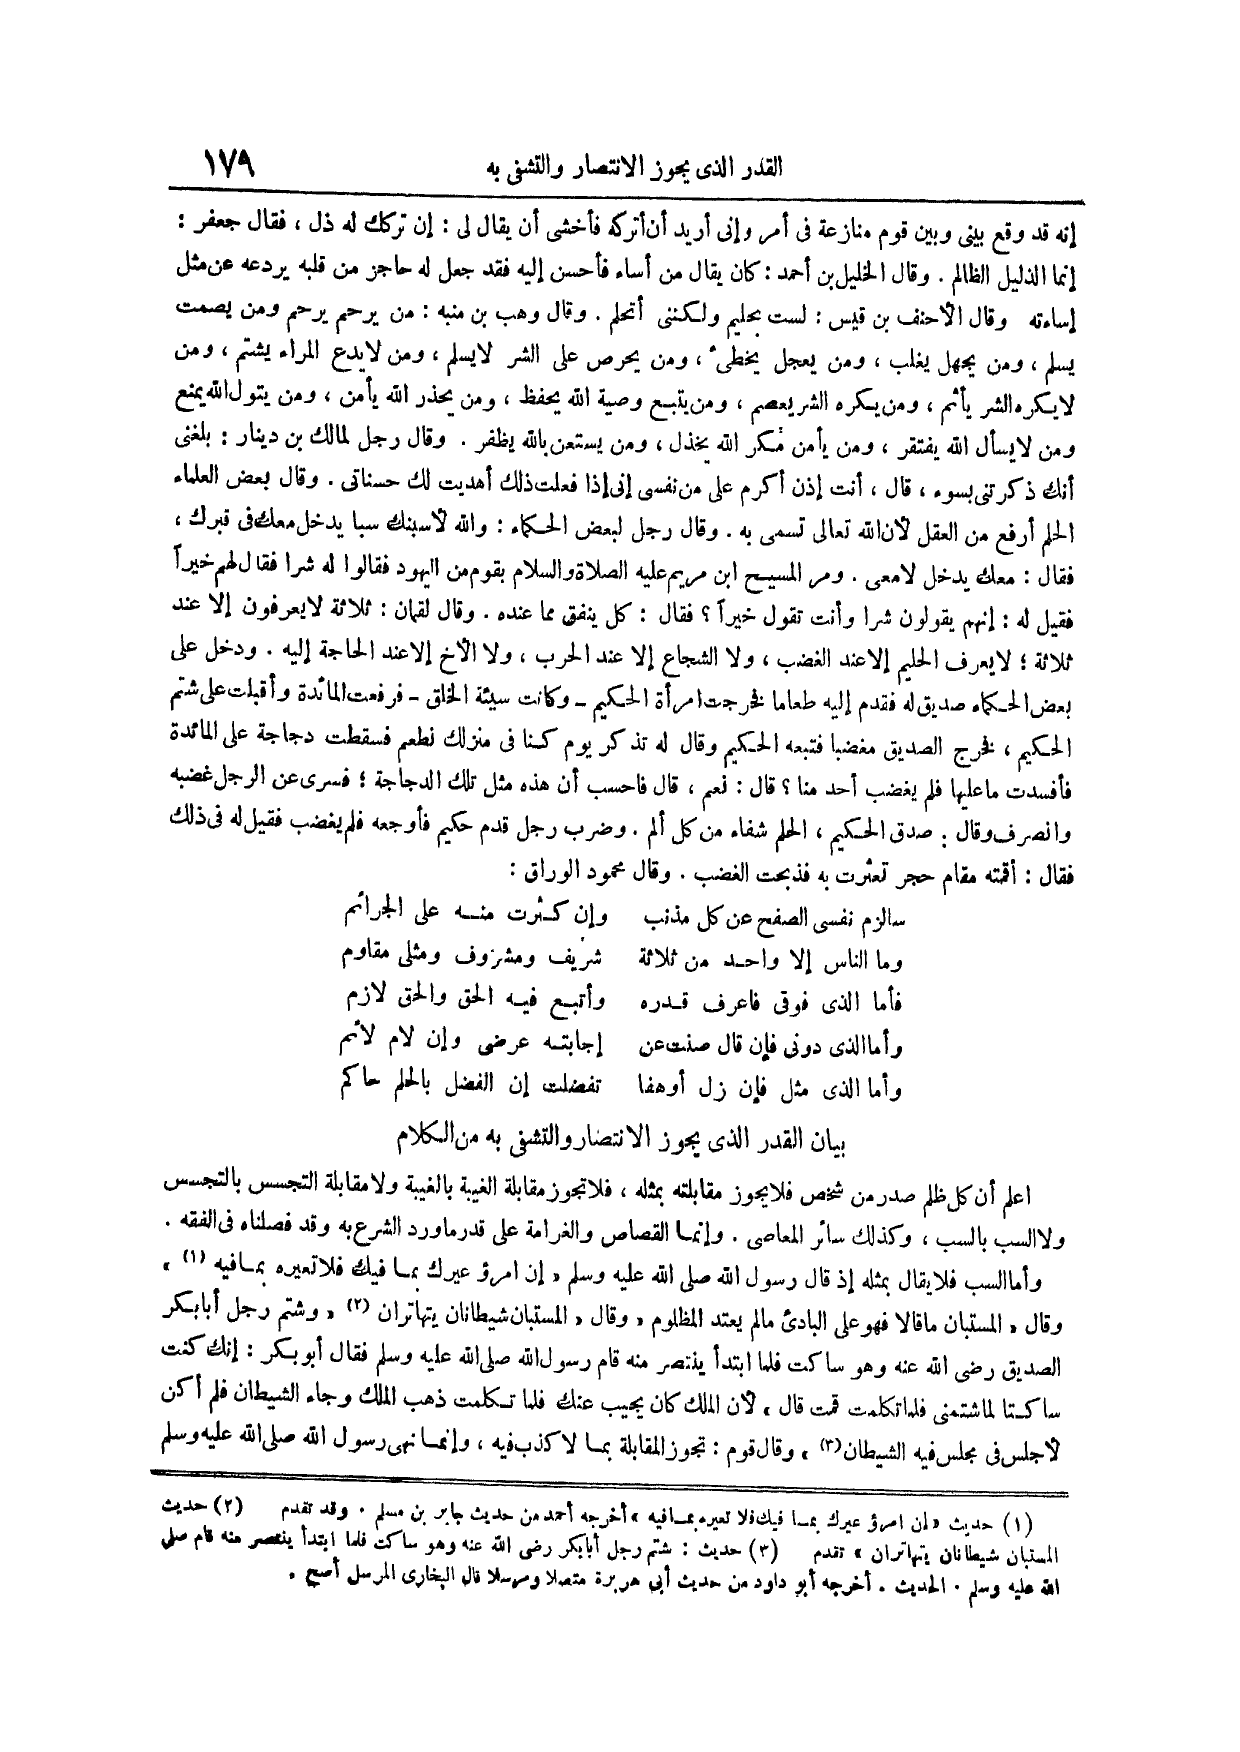 القدر الذى يجوز الانتصار والتشفى به ١٧٩
إنه قد وقع بينى وبين قوم منازعة فى أمر وإنى أريد أن أتركه فأخشى أن يقال لى : إن تركك له ذل ، فقال جعفر :
إنما الذليل الظالم . وقال الخليل بن أحمد : كان يقال من أساء فأحسن إليه فقد جعل له حاجز من قلبه يردعه عن مثل
إساءته وقال الأحنف بن قيس : لست بحليم ولكننى أتحلم . وقال وهب بن منبه : من يرحم يرحم ومن يصمت
يسلم ، ومن يجهل يغلب ، ومن يعجل يخطىء ، ومن يحرص على الشر لايسلم ، ومن لايدع المراء يشتم ، ومن
لا يكره الشر يأثم ، ومن يكره الشر يعصم ، ومن يتبع وصية الله يحفظ ، ومن يحذر الله يأمن ، ومن يتول الله يمنع
ومن لايسأل الله يفتقر ، ومن يأمن مكر الله يخذل ، ومن يستعن بالله يظفر . وقال رجل لمالك بن دينار : بلغنى
أنك ذكرتنى بسوء ، قال ، أنت إذن أكرم على من نفسى إنى إذا فعلت ذلك أهديت لك حسناتى . وقال بعض العلماء
الحلم أرفع من العقل لأن الله تعالى تسمى به . وقال رجل لبعض الحكماء : والله لأسبنك سبا يدخل معك فى قبرك ،
فقال : معك يدخل لامعى . ومر المسيح ابن مريم عليه الصلاة والسلام بقوم من اليهود فقالوا له شرا فقال لهم خيراً
فقيل له : إنهم يقولون شرا وأنت تقول خيراً ؟ فقال : كل ينفق مما عنده . وقال لقمان : ثلاثة لايعرفون إلا عند
ثلاثة ؛ لايعرف الحليم إلا عند الغضب ، ولا الشجاع إلا عند الحرب ، ولا الأخ إلا عند الحاجة إليه . ودخل على
بعض الحكماء صديق له فقدم إليه طعاما فخرجت امرأة الحكيم ـ وكانت سيئة الخلق ـ فرفعت المائدة وأقبلت على شتم
الحكيم ، فخرج الصديق مغضبا فتبعه الحكيم وقال له تذكر يوم كنا فى منزلك نطعم فسقطت دجاجة على المائدة
فأفسدت ماعليها فلم يغضب أحد منا ؟ قال : نعم ، قال فاحسب أن هذه مثل تلك الدجاجة ؛ فسرى عن الرجل غضبه
وانصرف وقال : صدق الحكيم ، الحلم شفاء من كل ألم . وضرب رجل قدم حكيم فأوجعه فلم يغضب فقيل له فى ذلك
فقال : أقمته مقام حجر تعثرت به فذبحت الغضب . وقال محمود الوراق :
سالزم نفسى الصفح عن كل مذنب وإن كثرت منه على الجرائم
وما الناس إلا واحد من ثلاثة شريف ومشروف ومثلى مقاوم
فأما الذى فوقى فاعرف قدره وأتبع فيه الحق والحق لازم
وأما الذى دونى فإن قال صنت عن إجابته عرضى وإن لام لائم
وأما الذى مثلى فإن زل أوهفا تفضلت إن الفضل بالحلم حاكم
بيان القدر الذى يجوز الانتصار والتشفى به من الكلام
اعلم أن كل ظلم صدر من شخص فلايجوز مقابلته بمثله ، فلاتجوز مقابلة الغيبة بالغيبة ولا مقابلة التجسس بالتجسس
ولا السب بالسب ، وكذلك سائر المعاصى . وإنما القصاص والغرامة على قدر ماورد الشرع به وقد فصلناه فى الفقه .
وأما السب فلايقال بمثله إذ قال رسول الله صلى الله عليه وسلم « إن امرؤ عيرك بما فيك فلاتعيره بمافيه (١) »
وقال « المستبان ماقالا فهو على البادئ مالم يعتد المظلوم » وقال « المستبان شيطانان يتهاتران (٢) » وشتم رجل أبابكر
الصديق رضى الله عنه وهو ساكت فلما ابتدأ ينتصر منه قام رسول الله صلى الله عليه وسلم فقال أبو بكر : إنك كنت
ساكتا لما شتمنى فلما تكلمت قمت قال « لأن الملك كان يجيب عنك فلما تكلمت ذهب الملك وجاء الشيطان فلم أكن
لأجلس فى مجلس فيه الشيطان (٣) » وقال قوم : تجوز المقابلة بما لا كذب فيه ، وإنما نهى رسول الله صلى الله عليه وسلم
(١) حديث « إن امرؤ عيرك بما فيك فلا تعيره بمافيه » أخرجه أحمد من حديث جابر بن مسلم . وقد تقدم (٢) حديث
المستبان شيطانان يتهاتران » تقدم (٣) حديث : شتم رجل أبابكر رضى الله عنه وهو ساكت فلما ابتدأ ينتصر منه قام صلى
الله عليه وسلم . الحديث . أخرجه أبو داود من حديث أبى هريرة متصلا ومرسلا قال البخارى المرسل أصح .